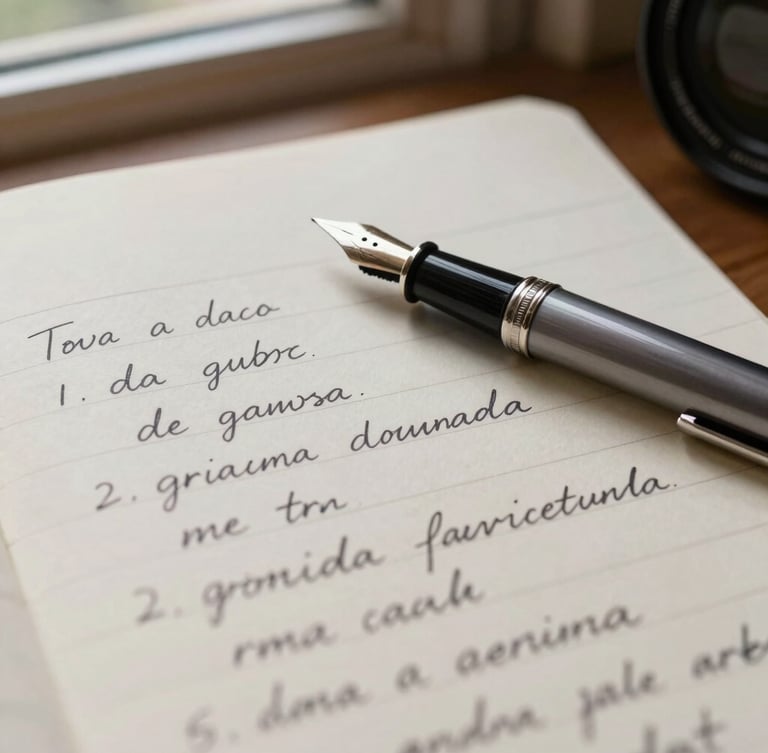 Tova a daca
1. da gubrc.
de gamosa.
2. griacma doumnada
me trn
2. gronida favricetunla.
rma caculı
5. dma a aenima
andra jale